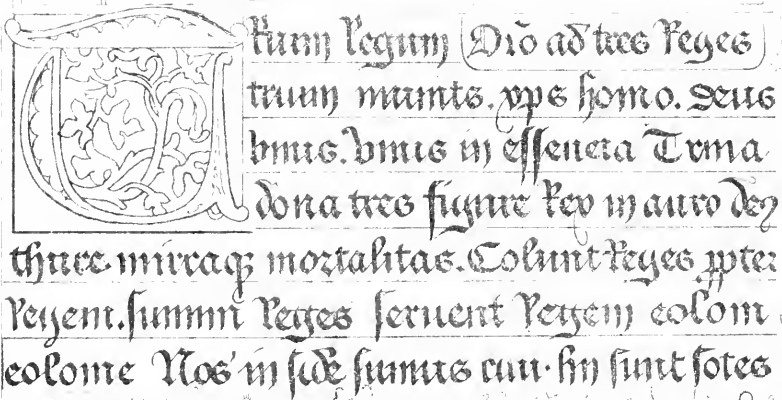 Trium Regum Orō ad tres Reges
trium munus. xps homo. deus
vnus. Vnus in essencia Trina
dona tres signūt Rex in auro deꝰ
thure mirraqꝫ mortalitas. Colunt Reges ꝓpter
Regem. summi Reges seruent Regem coloni
colonie Nos in fide sumus riui. hii sunt fōtes